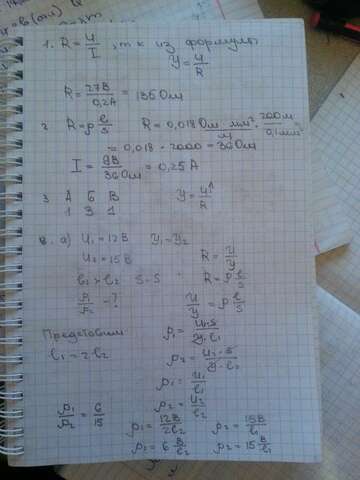 1. R = U/I , т к из формулы
Y = U/R
R = 27В/0,2А = 136 Ом
2 R = ρ l/s R = 0,018 Ом · мм²/м · 200м/0,1мм²
= 0,018 · 2000 = 36 Ом
I = 9В/36 Ом = 0,25 А
3 А Б В Y = U↑/R
1 3 1
в. а) U₁ = 12 В Y₁ = Y₂
U₂ = 15 В R = U/Y
l₁ > l₂ S - S R = ρ l/s
ρ₁/ρ₂ - ? U/Y = ρ l/s
Представим ρ₁ = U₁·S/Y·l₁
l₁ = 2l₂ ρ₂ = U₂·S/Y·l₂
ρ₁ = U₁/l₁
ρ₂ = U₂/l₂
ρ₁/ρ₂ = 6/15 ρ₁ = 12В/2l₂ ρ₂ = 15В/l₂
ρ₁ = 6 В/l₂ ρ₂ = 15 В/l₂